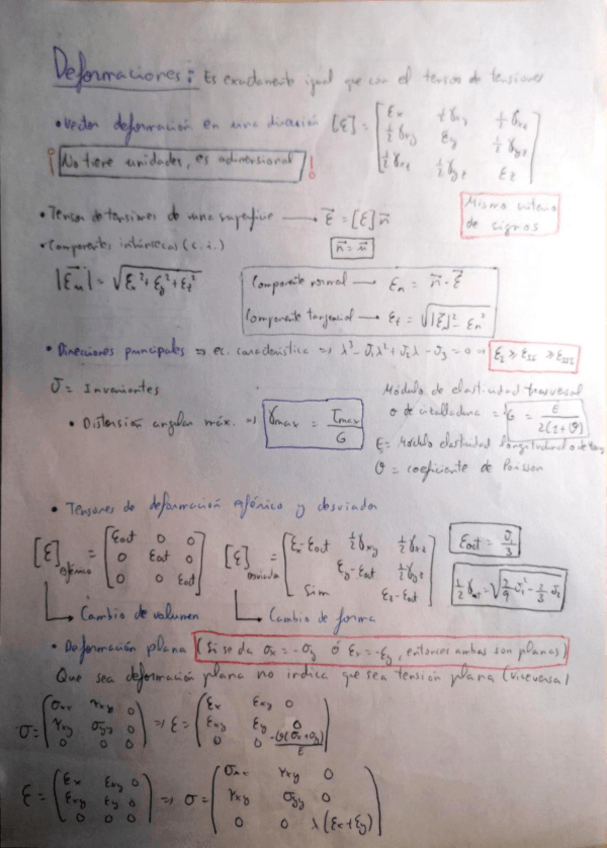 Deformaciones: Es exactamente igual que con el tensor de tensiones
• Vector deformación en una dirección [ε] = [εx ½γxy ½γxz
½γxy εy ½γyz
½γxz ½γyz εz]
¡No tiene unidades, es adimensional!
• Tensor de tensiones de una superficie → ε⃗ = [ε] n⃗
Mismo criterio
de signos
• Componentes intrínsecas (c.i.)
n⃗ = u⃗
|ε⃗u| = √(εx² + εy² + εz²)
Componente normal → εn = n⃗ · ε⃗
Componente tangencial → εt = √(|ε⃗|² - εn²)
• Direcciones principales ⇒ ec. característica ⇒ λ³ - J₁λ² + J₂λ - J₃ = 0 ⇒ εI ≥ εII ≥ εIII
J = Invariantes
Módulo de elasticidad trasversal
o de cizalladura ⇒ G = E / 2(1+ϑ)
• Distorsión angular máx. ⇒ γmax = τmax / G
E = Módulo elasticidad longitudinal o de
ϑ = coeficiente de Poisson
• Tensores de deformación esférico y desviador
[ε]esférico = [εoct 0 0
0 εoct 0
0 0 εoct]
[ε]desviador = [εx-εoct ½γxy ½γxz
εy-εoct ½γyz
Sim εz-εoct]
εoct = J₁/3
½γoct = √(2/9 J₁² - 2/3 J₂)
↳ Cambio de volumen
↳ Cambio de forma
• Deformación plana (Si se da σx = -σy ó εx = -εy, entonces ambas son planas)
Que sea deformación plana no indica que sea tensión plana (viceversa)
σ = (σxx τxy 0
τxy σyy 0
0 0 0) ⇒ ε = (εx εxy 0
εxy εy 0
0 0 -ϑ(σx+σy)/E)
ε = (εx εxy 0
εxy εy 0
0 0 0) ⇒ σ = (σxx τxy 0
τxy σyy 0
0 0 λ(εx+εy))